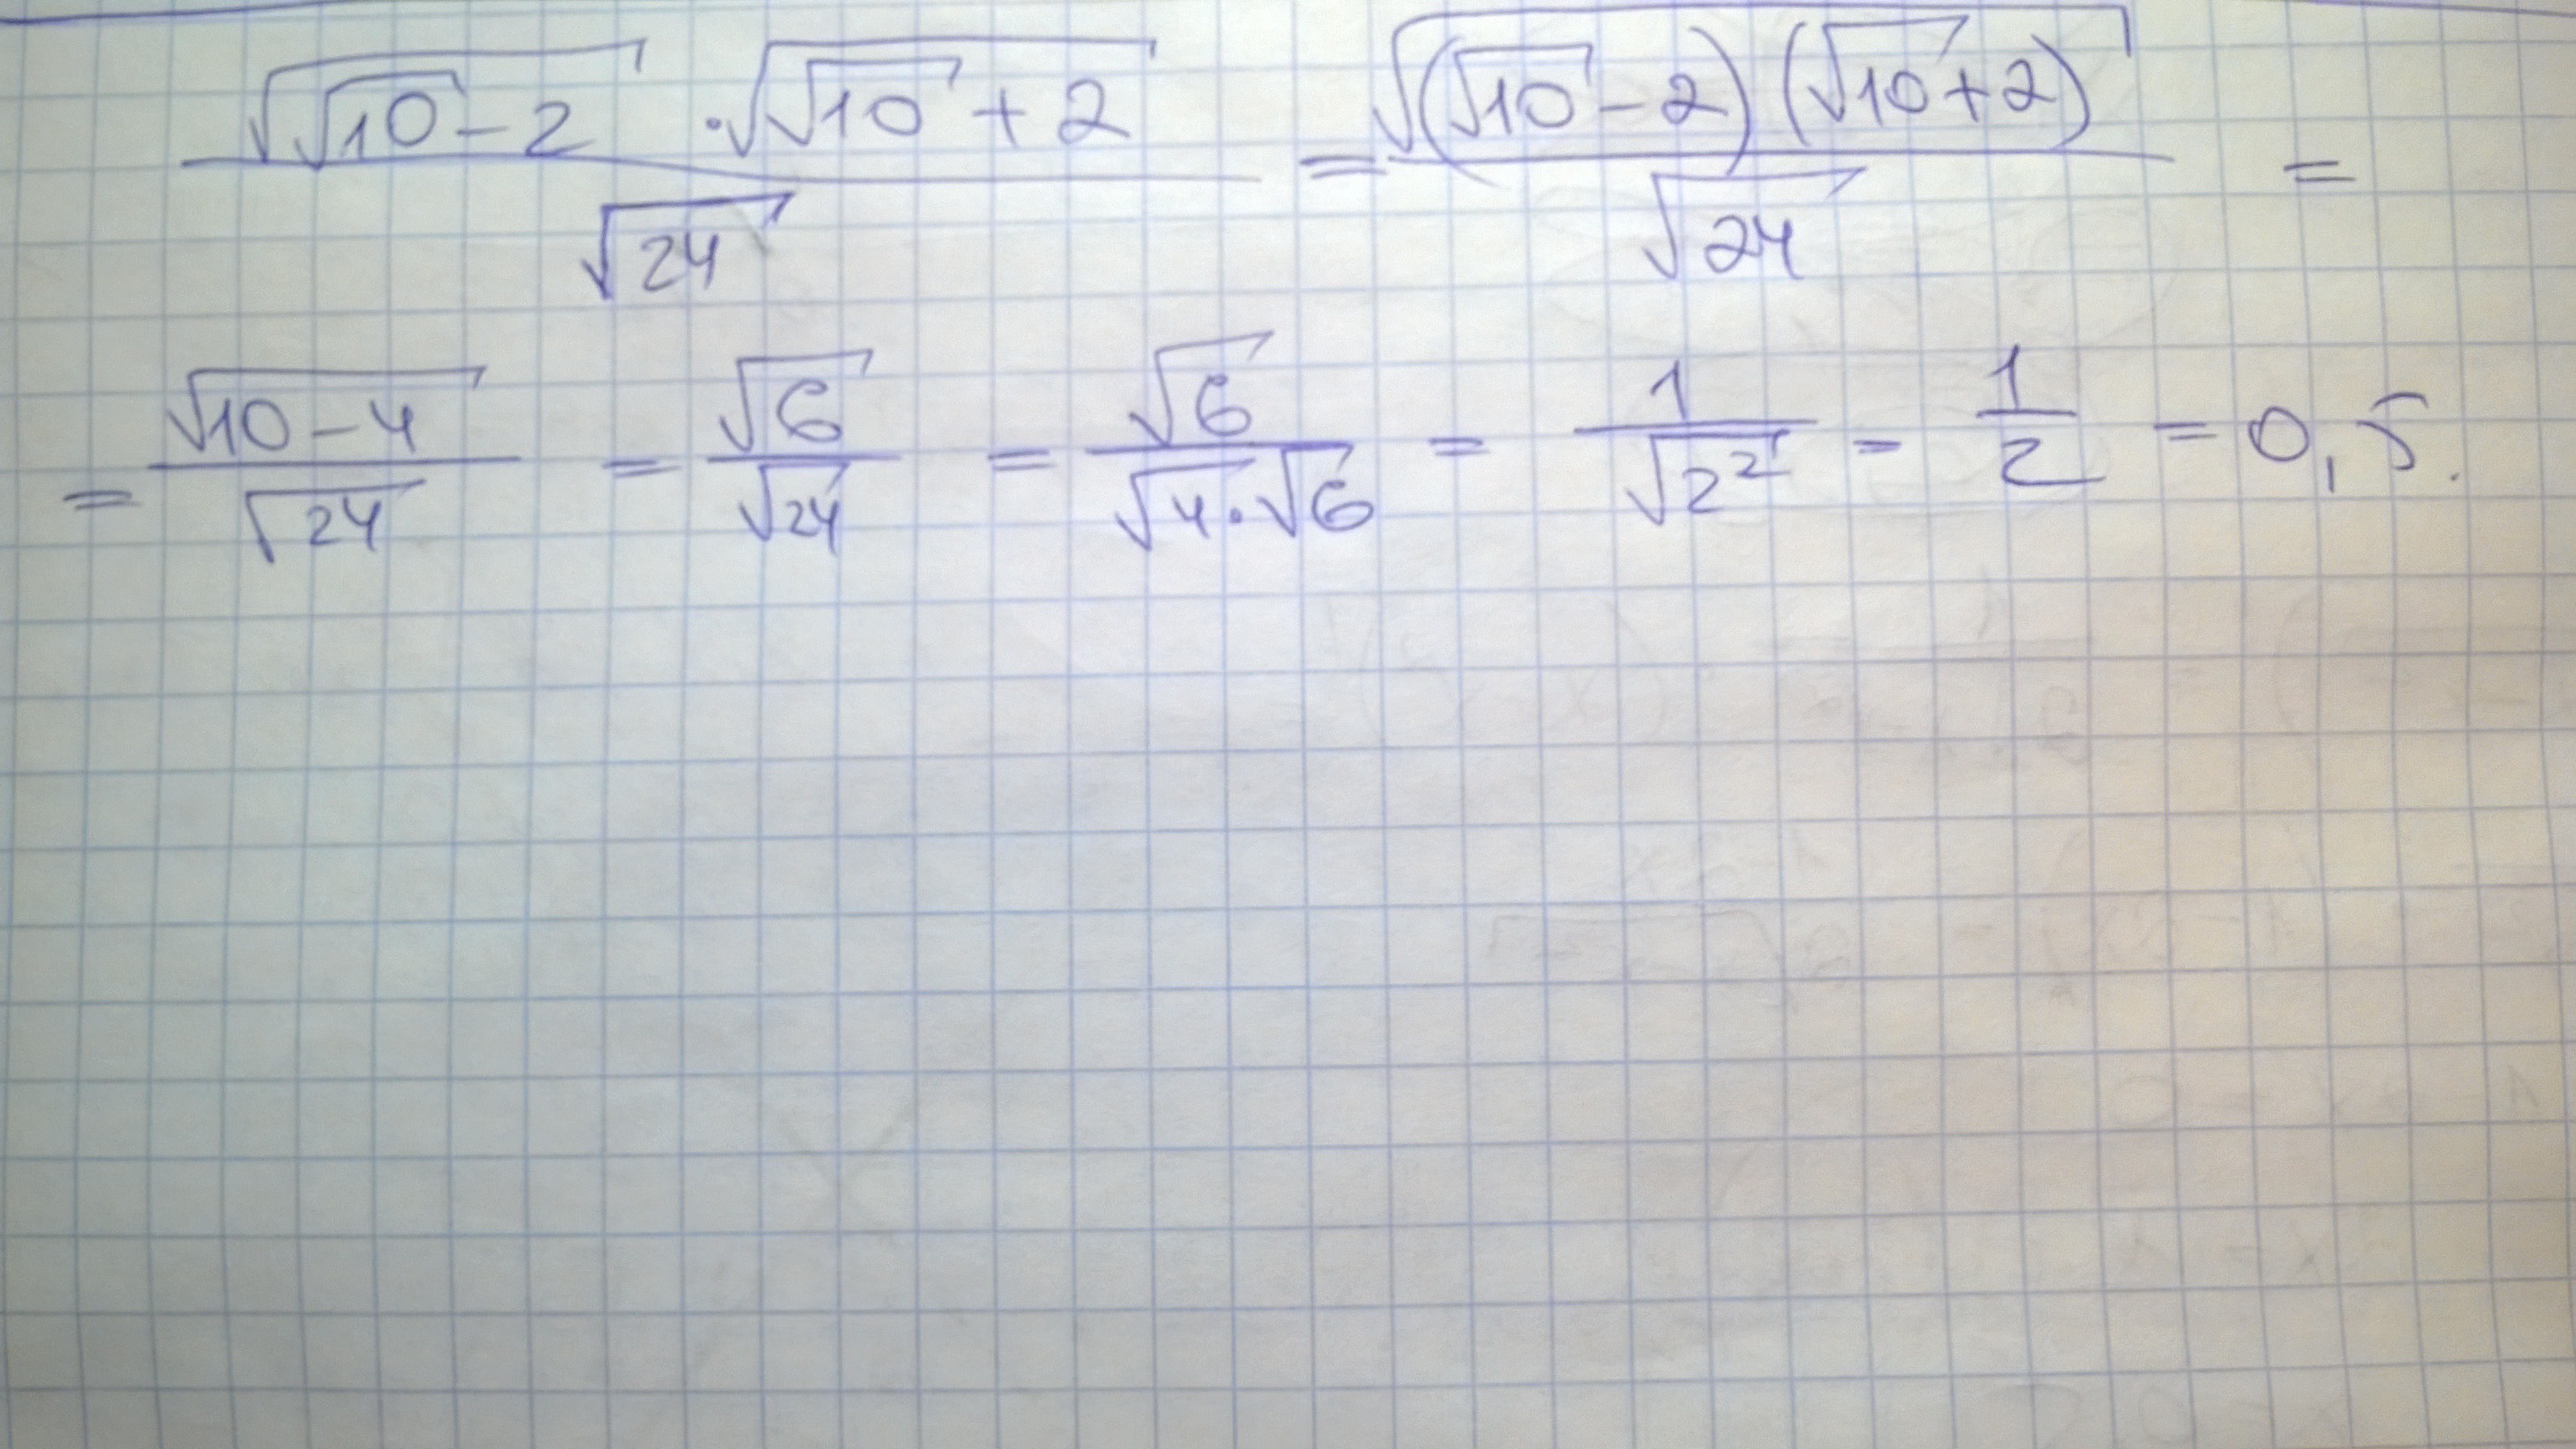 √(√10 − 2) · √(√10 + 2) / √24 = √((√10 − 2)(√10 + 2)) / √24 =
= √(10 − 4) / √24 = √6 / √24 = √6 / (√4 · √6) = 1 / √(2²) = 1/2 = 0,5.